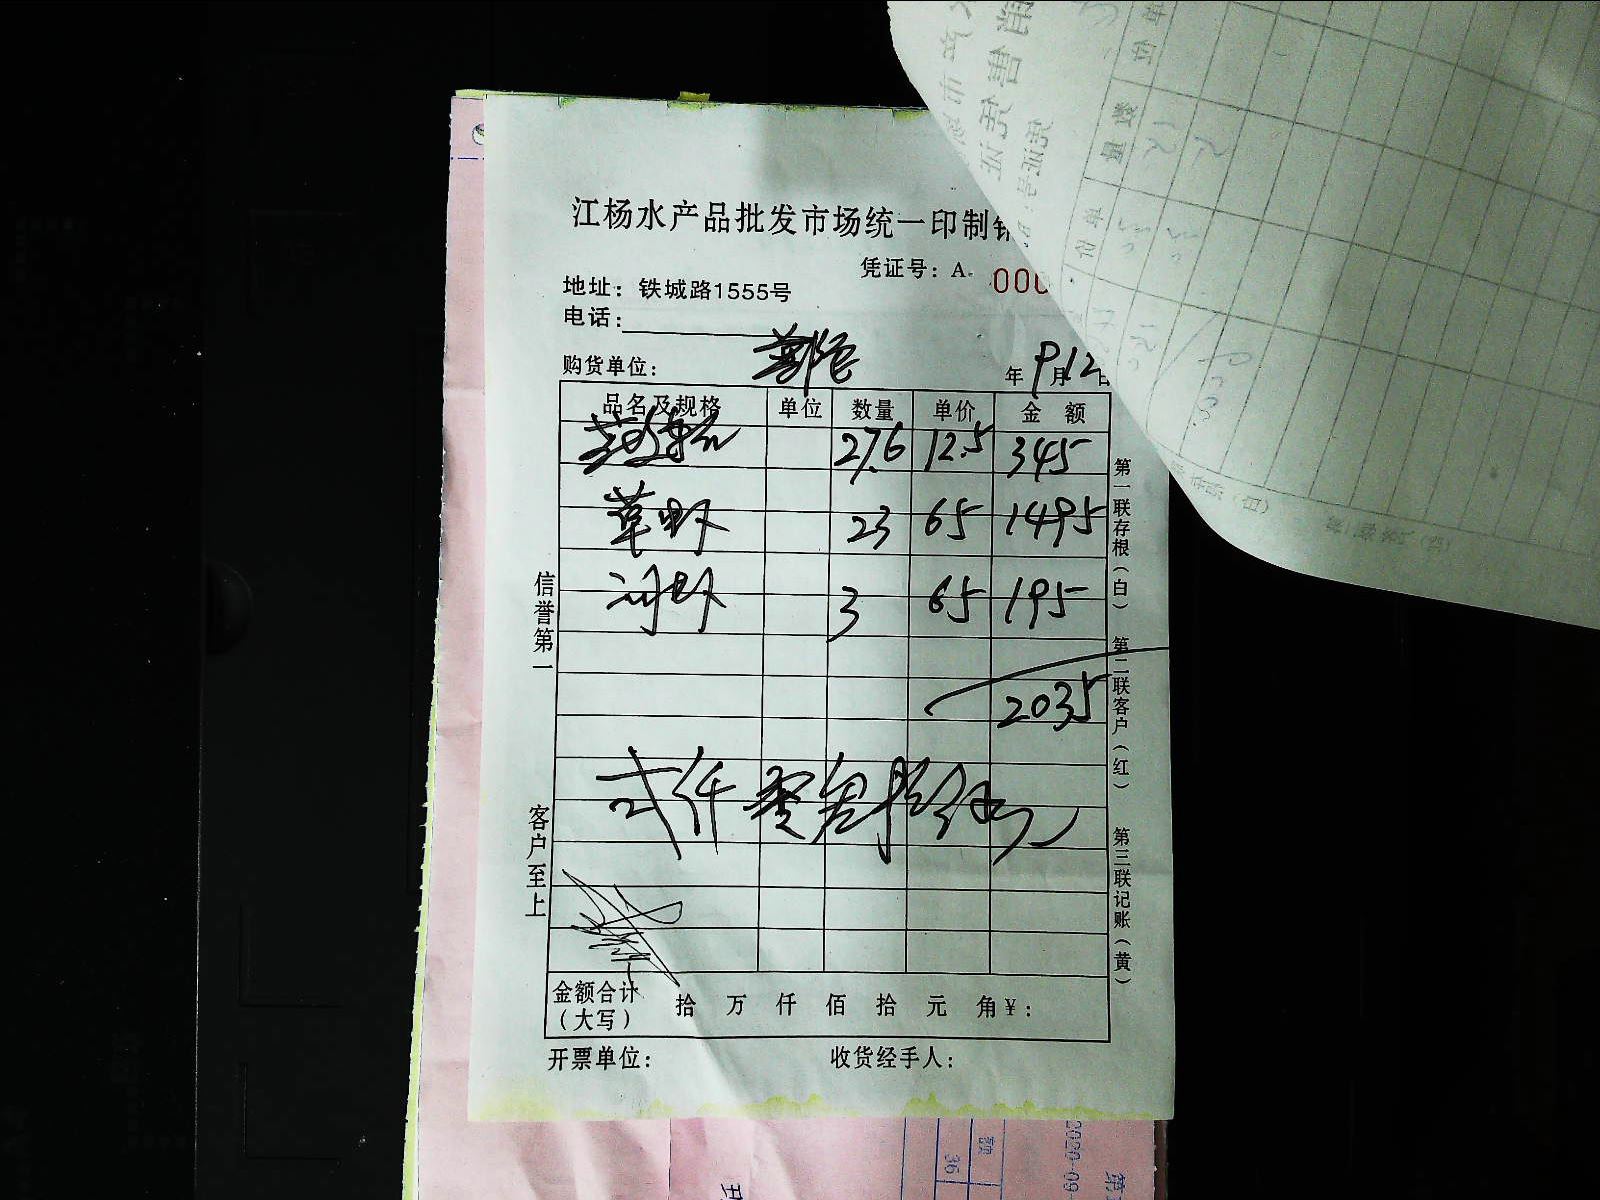 江杨水产品批发市场统一印制销
凭证号：A· 000
地址：铁城路1555号
电话：
购货单位： 年9月12日
品名及规格 单位 数量 单价 金 额
27.6 12.5 345
草虾 23 65 1495
河虾 3 65 195
2035
弍仟零叁拾伍元
金额合计（大写） 拾 万 仟 佰 拾 元 角 ¥：
开票单位： 收货经手人：
信誉第一
客户至上
第一联存根（白） 第二联客户（红） 第三联记账（黄）
额
36
2020-09